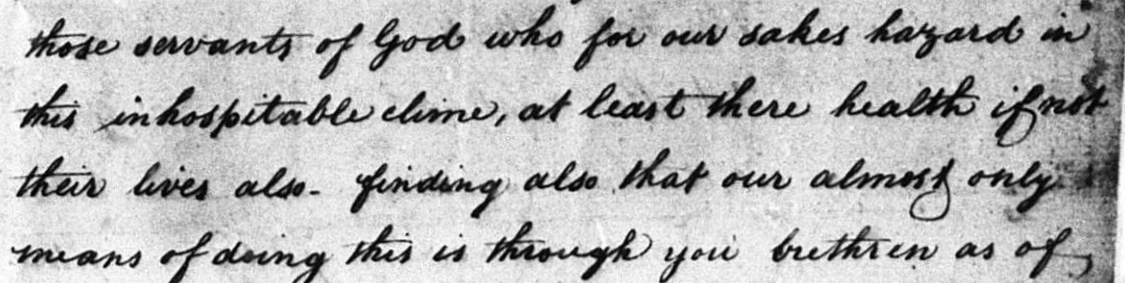 those servants of God who for our sakes hazard in
this inhospitable clime, at least there health if not
their lives also - finding also that our almost only
means of doing this is through you brethren as of